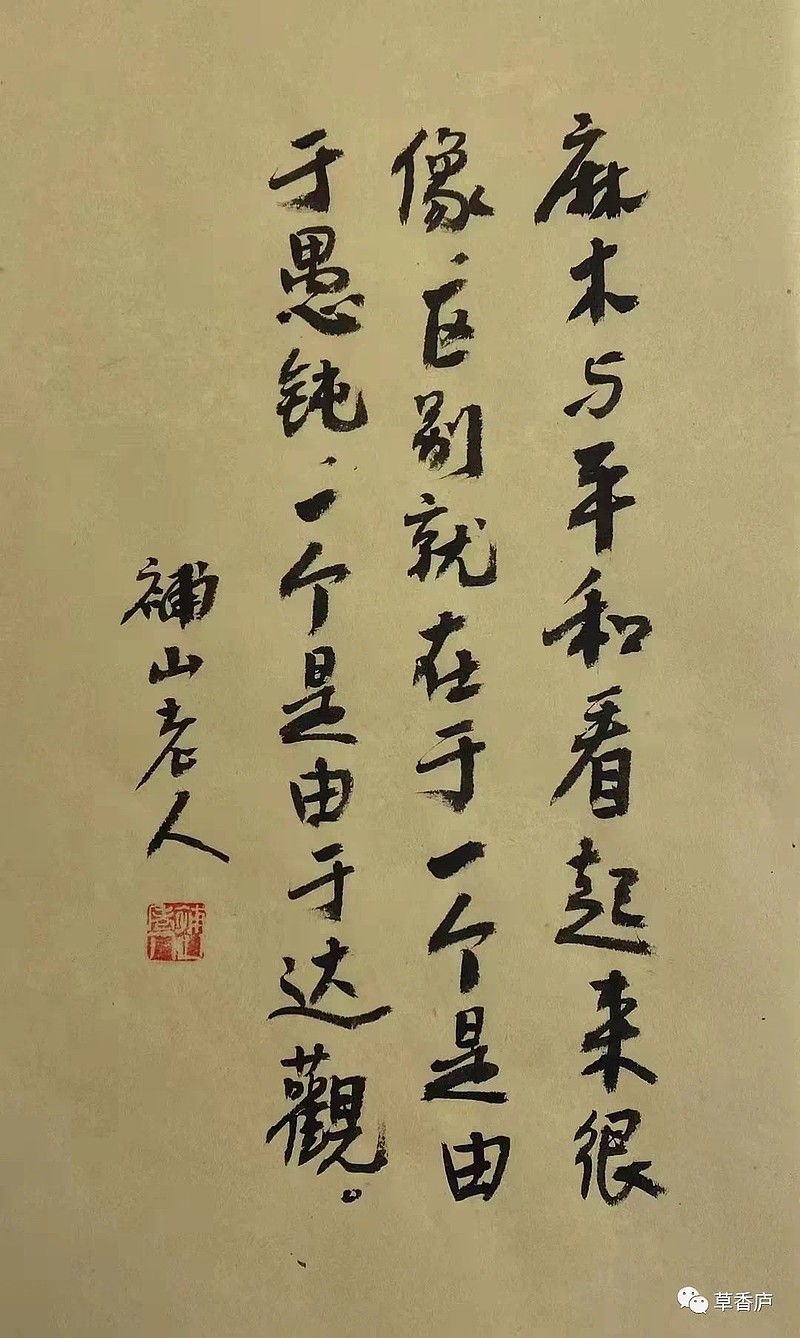 麻木与平和看起来很
像，区别就在于一个是由
于愚钝，一个是由于达觀。
補山老人
草香庐